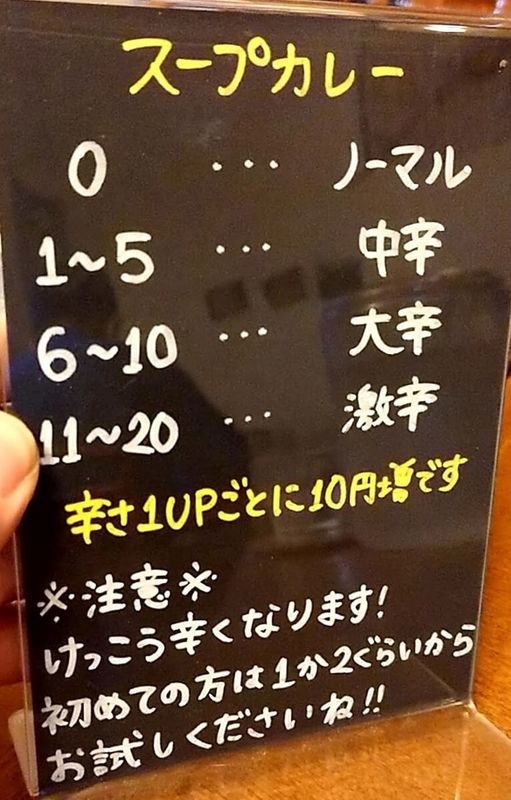 スープカレー
0 ... ノーマル
1～5 ... 中辛
6～10 ... 大辛
11～20 ... 激辛
辛さ1UPごとに10円増です
※注意※
けっこう辛くなります!
初めての方は1か2ぐらいから
お試しくださいね!!